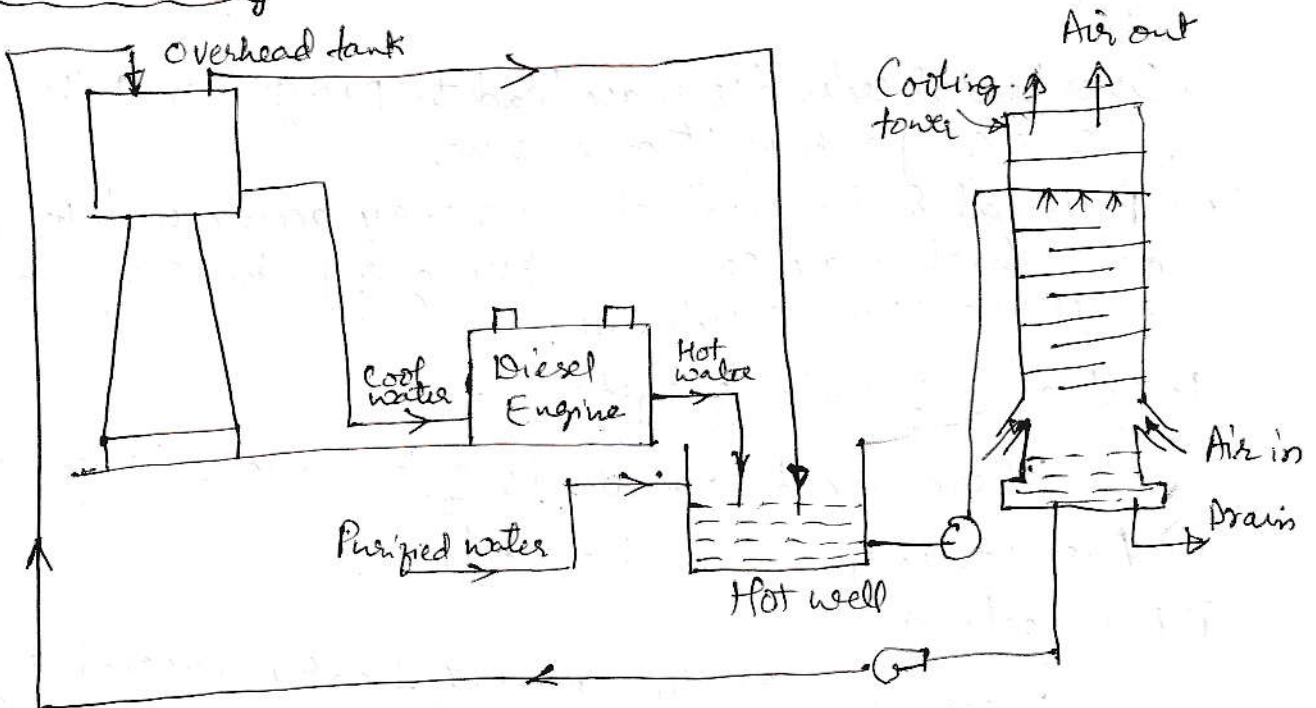 overhead tank
Air out
Cooling
tower
Cool
water
Diesel
Engine
Hot
water
Air in
Drain
Purified water
Hot well